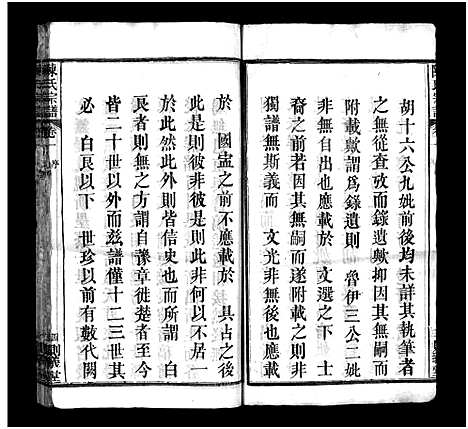 胡十六公九妣前後均未詳其執筆者
之無從查攷而錄遺歟抑因其無嗣而
附載歟謂爲錄遺則 魯伊三公二妣
非無自出也應載於 文選之下 士
裔之前若因其無嗣而遂附載之則非
獨譜無斯義而 文光非無後也應載
於 國盂之前不應載於 具占之後
此是則彼非彼是則此非何以不居一
於此然此外則皆信史也而所謂 白
良者則無之方謂自豫章徙楚者至今
皆二十世以外而兹譜僅十二三世其
必 白良以下 世珍以前有數代闕
陳氏宗譜 卷一 序
四